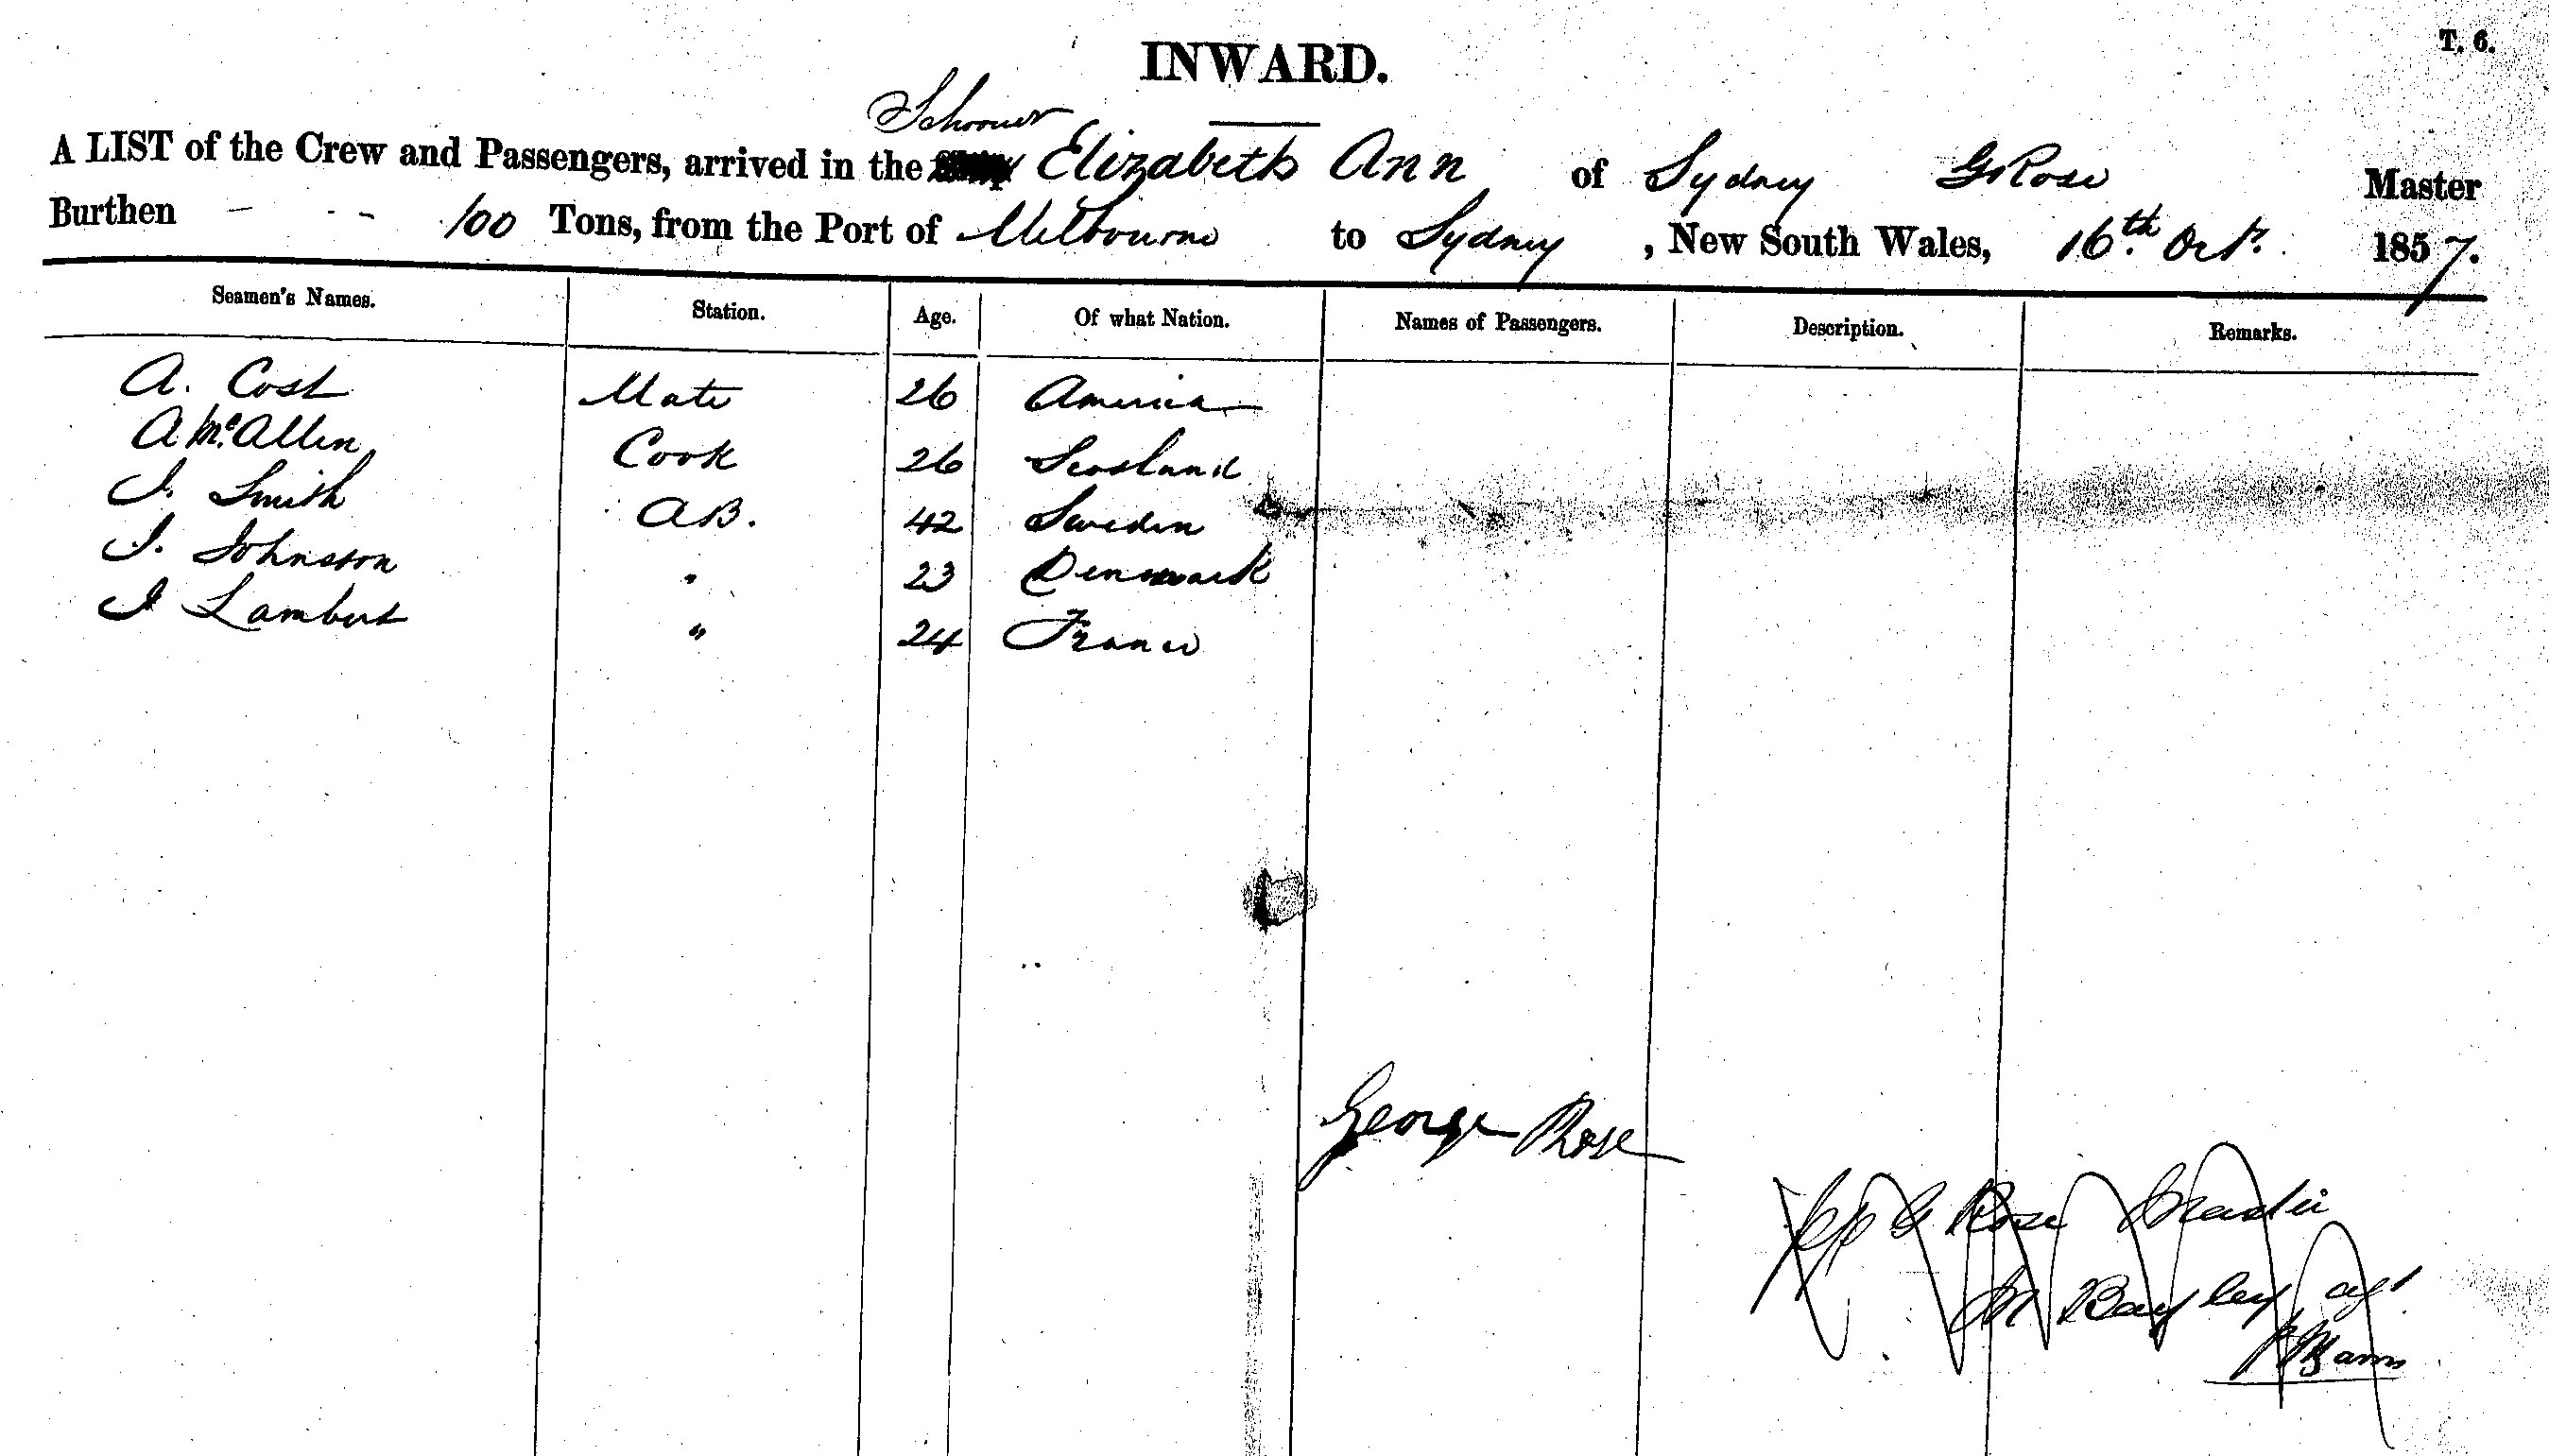 T. 6.
INWARD.
Schooner
A LIST of the Crew and Passengers, arrived in the Ship Elizabeth Ann of Sydney G Rose Master
Burthen - - - 100 Tons, from the Port of Melbourne to Sydney, New South Wales, 16th. Octr. 1857.
Seamen's Names. Station. Age. Of what Nation. Names of Passengers. Description. Remarks.
A. Cost Mate 26 America
A McAllen Cook 26 Scotland
J. Smith AB. 42 Sweden
J. Johnston " 23 Denmark
J Lambert " 24 France
George Rose
G Rose Master
Bayley agt